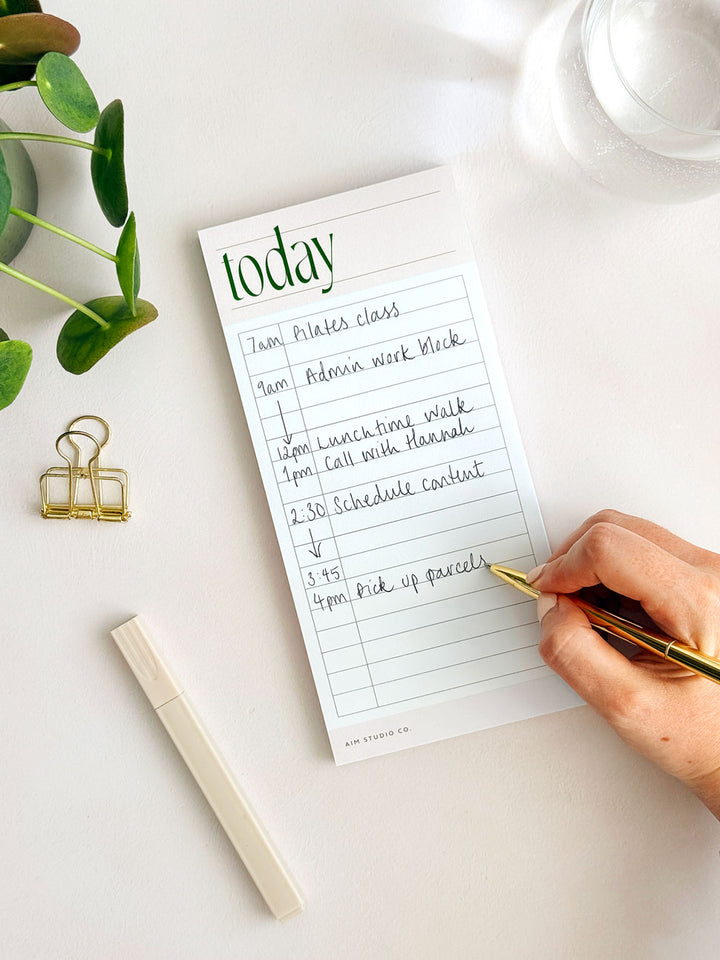 today
7am Pilates class
9am Admin work block
12pm Lunchtime walk
1pm Call with Hannah
2:30 Schedule content
3:45
4pm Pick up parcels
AIM STUDIO CO.